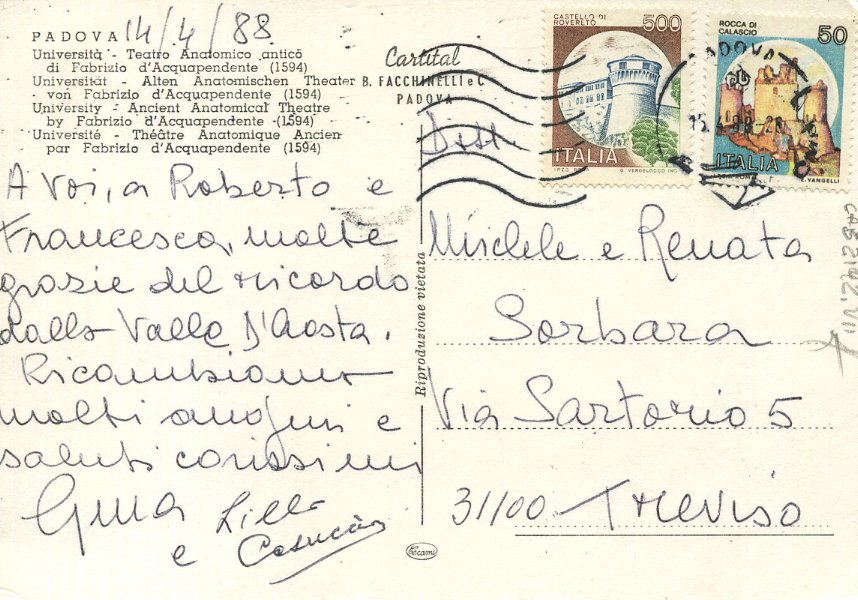 PADOVA 14/4/88
Università - Teatro Anatomico antico
di Fabrizio d'Acquapendente (1594)
Universität - Alten Anatomischen Theater
von Fabrizio d'Acquapendente (1594)
University - Ancient Anatomical Theatre
by Fabrizio d'Acquapendente - (1594)
Université - Théâtre Anatomique Ancien
par Fabrizio d'Acquapendente (1594)
Cartital
B. FACCHINELLI e C
PADOVA
CASTELLO DI
ROVERETO
500
ITALIA
ROCCA DI
CALASCIO
50
ITALIA
E. VANGELLI
PADOVA
A Voi, a Roberto e
Francesca, molte
grazie del ricordo
dalla Valle D'Aosta.
Ricambiamo
molti auguri e
saluti carissimi
Gina e Lillo
Riproduzione vietata
Dott.
Michele e Renata
Sorbara
Via Sartorio 5
31100 Treviso
Cecami